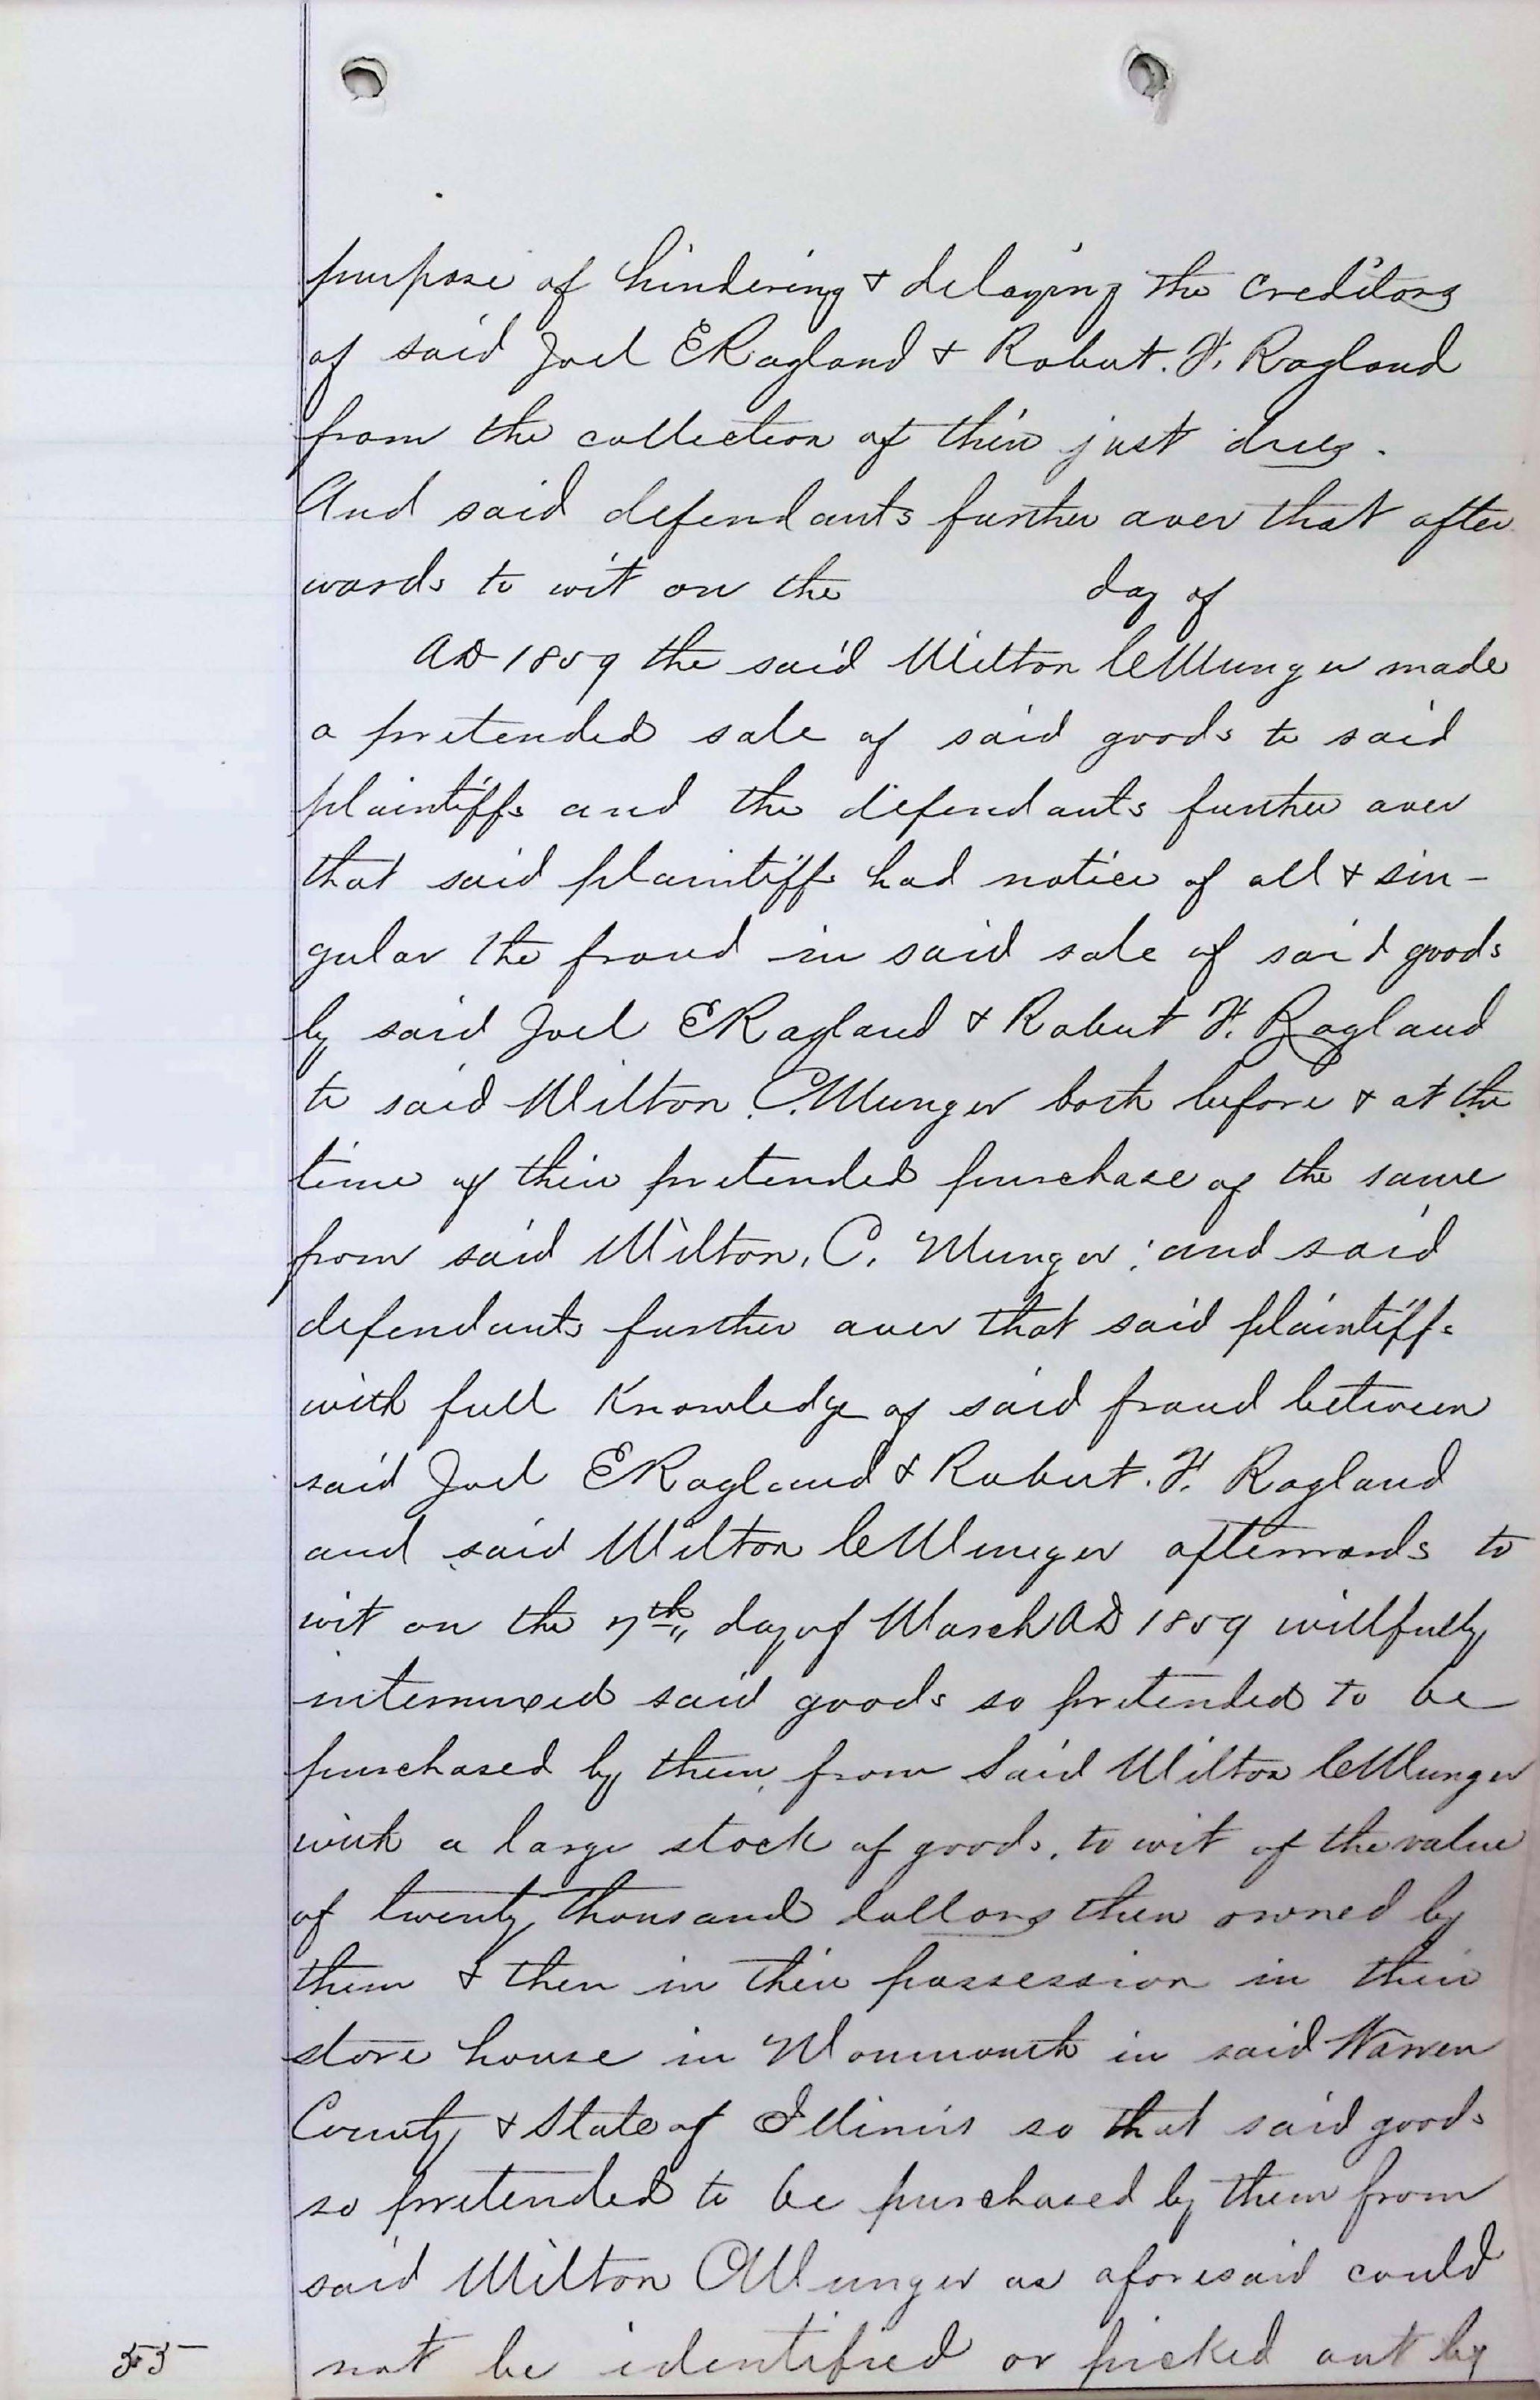 purpose of hindering & delaying the Creditors
of said Joel E Ragland & Robert. F. Ragland
from the collection of their just dues.
And said defendants further aver that after
wards to wit on the day of
AD 1859 the said Milton C Munger made
a pretended sale of said goods to said
plaintiffs and the defendants further aver
that said plaintiffs had notice of all & sin-
gular the fraud in said sale of said goods
by said Joel E Ragland & Robert F. Ragland
to said Milton C. Munger both before & at the
time of their pretended purchase of the same
from said Milton, C. Munger; and said
defendants further aver that said plaintiffs
with full Knowledge of said fraud between
said Joel E Ragland & Robert. F. Ragland
and said Milton C Munger afterwards to
wit on the 7th day of March AD 1859 willfully
intermixed said goods so pretended to be
purchased by them from said Milton C Munger
with a large stock of goods, to wit of the value
of twenty thousand dollars then owned by
them & then in their possession in their
store house in Monmouth in said Warren
County & State of Illinois so that said goods
so pretended to be purchased by them from
said Milton C Munger as aforesaid could
not be identified or picked out by